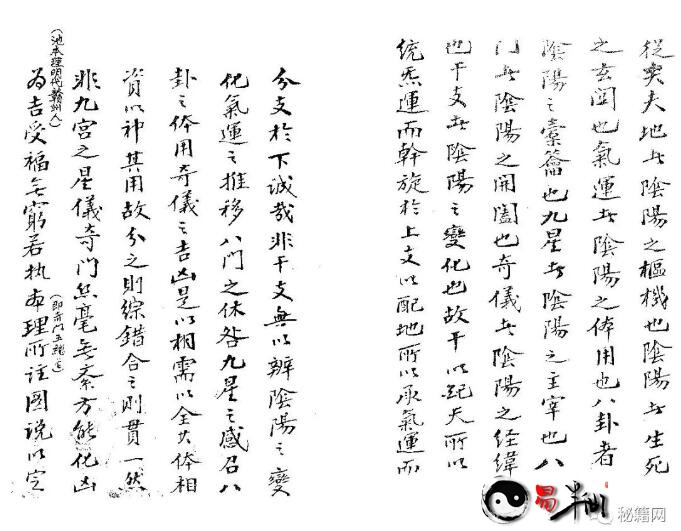 從夫地者陰陽之樞機也陰陽者生死
之玄関也氣運者陰陽之体用也八卦者
陰陽之橐籥也九星者陰陽之主宰也八
門者陰陽之開闔也奇儀者陰陽之経緯
也干支者陰陽之變化也故干以紀天所以
統炁運而幹旋於上支以配地所以承氣運而
分支於下诚哉非干支無以辨陰陽之變
化氣運之推移八門之休咎九星之感召八
卦之体用奇儀之吉凶是以相需以全其体相
資以神其用故分之則綜錯合之则貫一然
非九宫之星儀奇門丝毫无紊方能化凶
为吉受福无窮若执本理所註図说以定
(即奇门五)
(池本理明代赣州人)
易
秘籍网